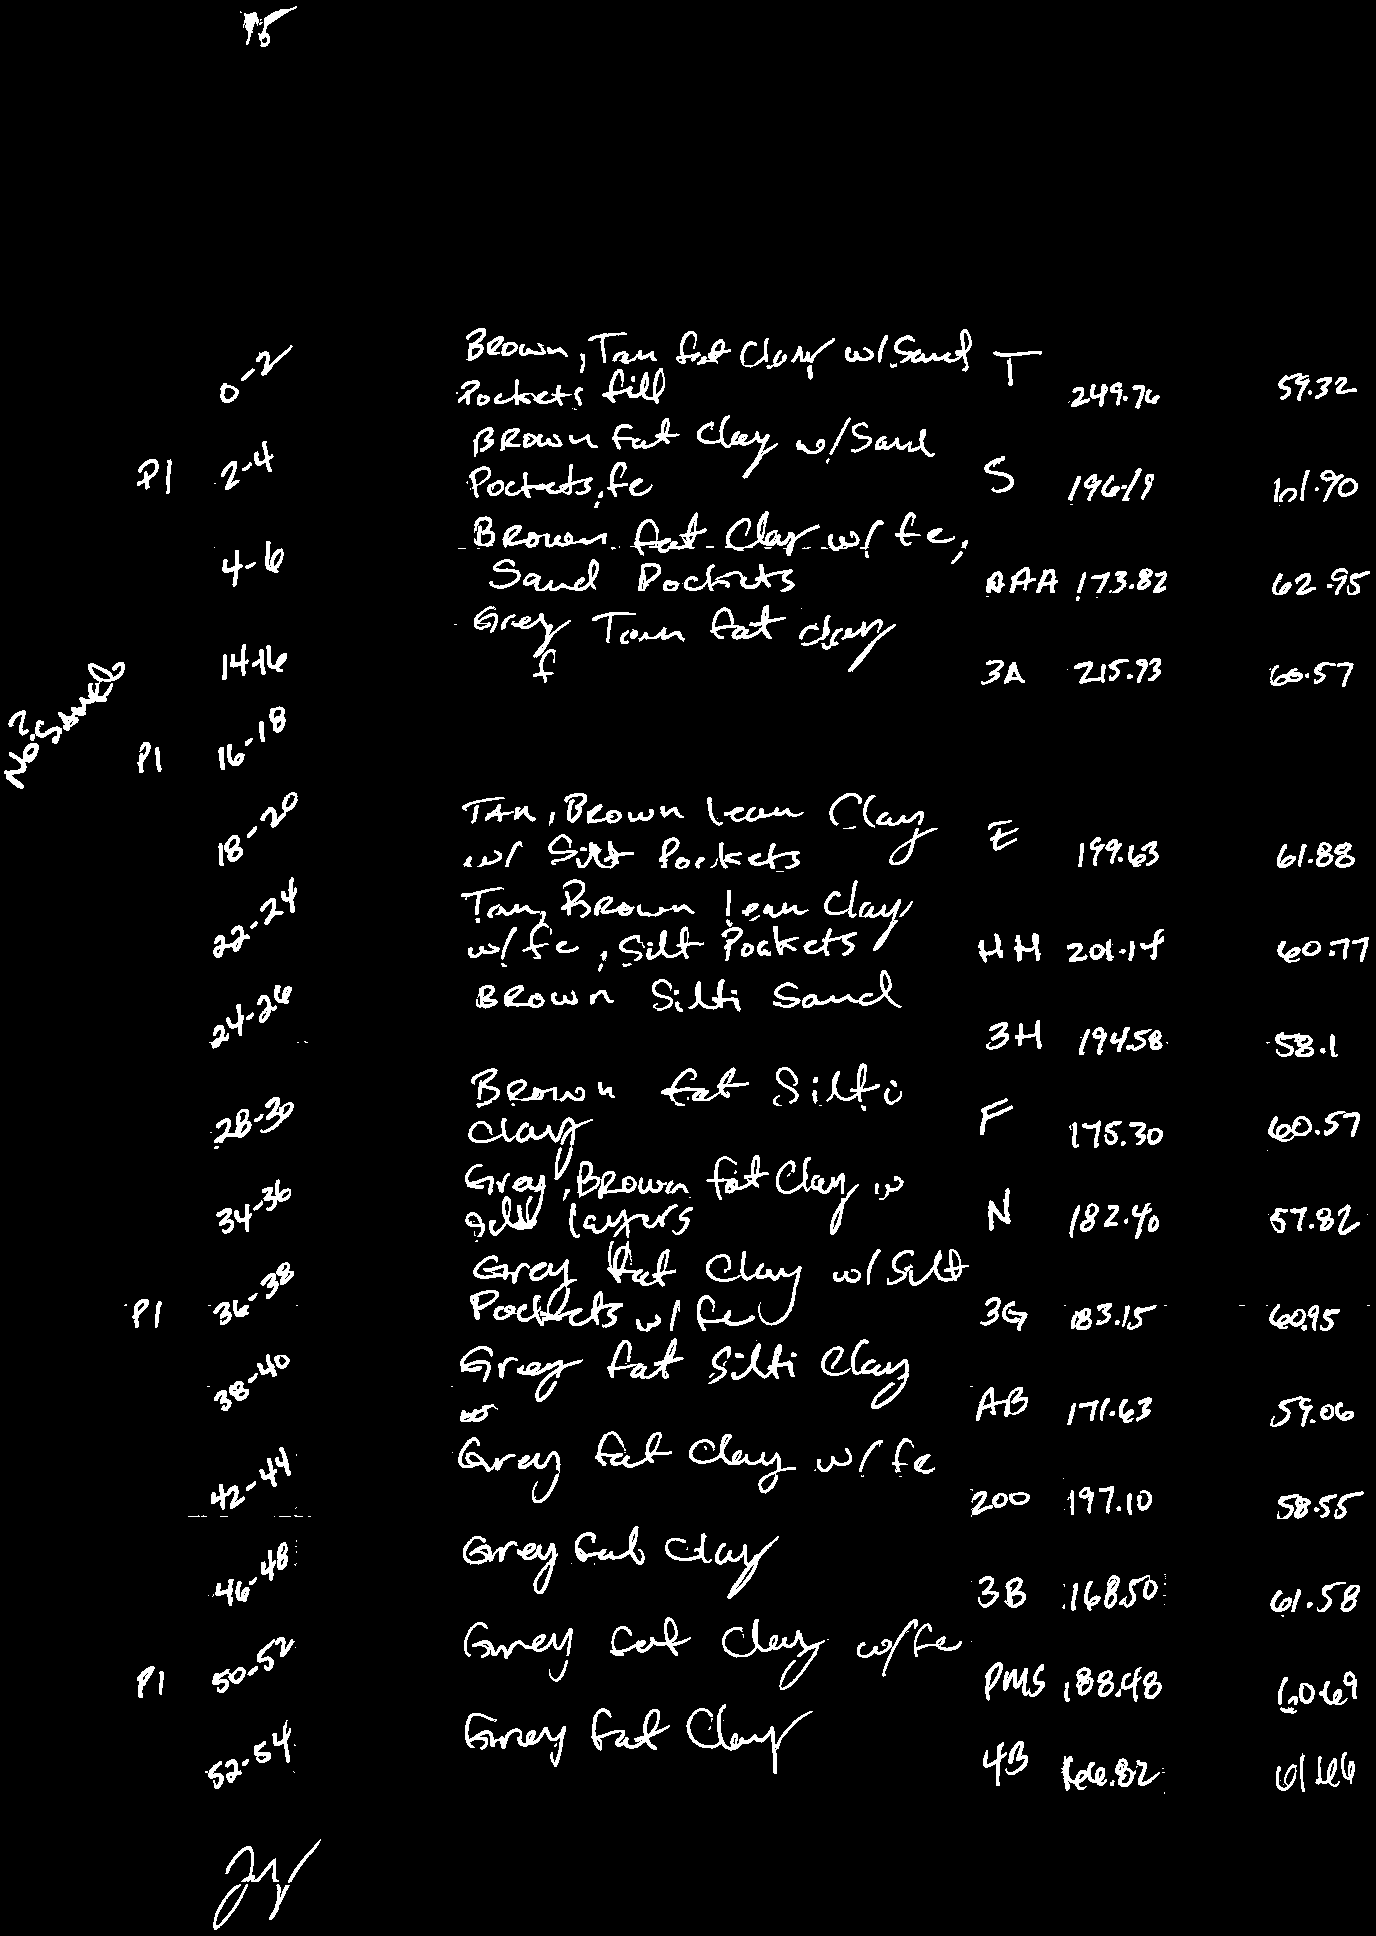 0-2 Brown, Tan fat Clay w/ Sand T
Pockets fill 249.76 59.32
Brown Fat Clay w/ Sand
P1 2-4 Pockets, fe S 196.19 61.90
Brown fat Clay w/ fe,
4-6 Sand Pockets AAA 173.82 62.95
Grey Tan fat clay
14-16 f 3A 215.93 60.57
No Sample
?
P1 16-18
18-20 TAN, Brown lean Clay
w/ Silt Pockets E 199.63 61.88
22-24 Tan, Brown lean Clay
w/ fe, Silt Pockets HH 201.14 60.77
24-26 Brown Silti Sand
3H 194.58 58.1
Brown fat Silti
28-30 clay F 175.30 60.57
Grey, Brown fat Clay w
34-36 layers N 182.40 57.82
Grey fat Clay w/ Silt
P1 36-38 Pockets w/ fe 3G 183.15 60.95
38-40 Grey fat Silti Clay
AB 171.63 59.06
42-44 Grey fat clay w/ fe
200 197.10 58.55
46-48 Grey fat clay
3B 168.50 61.58
Grey fat clay w/ fe
P1 50-52 PMS 188.48 60.69
52-54 Grey fat Clay
4B 166.82 61.66